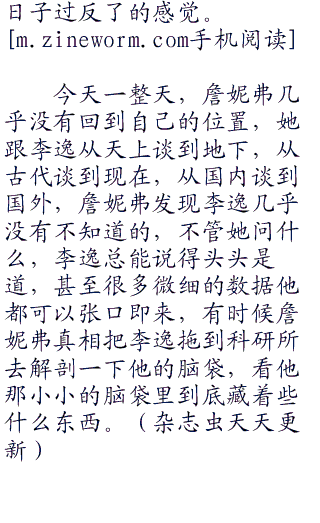 日子过反了的感觉。
[m.zineworm.com手机阅读]
今天一整天，詹妮弗几
乎没有回到自己的位置，她
跟李逸从天上谈到地下，从
古代谈到现在，从国内谈到
国外，詹妮弗发现李逸几乎
没有不知道的，不管她问什
么，李逸总能说得头头是
道，甚至很多微细的数据他
都可以张口即来，有时候詹
妮弗真相把李逸拖到科研所
去解剖一下他的脑袋，看他
那小小的脑袋里到底藏着些
什么东西。（杂志虫天天更
新）